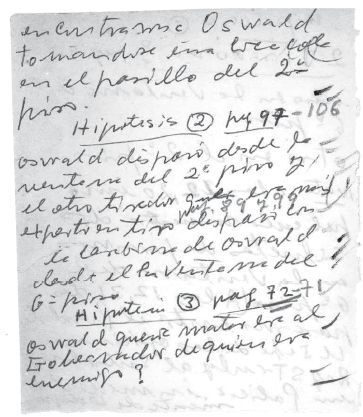 encontrarse Oswald
tomándose una coca cola
en el pasillo del 2º
piso.
Hipótesis ② pag 97-106
oswald disparó desde la
ventana del 2º piso y
el otro tirador que era más
experto en tiro disparó con
la carabina de oswald
desde el la ventana del
6º piso
Hipótesis ③ pag 72-71
oswald quería matar era al
Gobernador de quien era
enemigo?